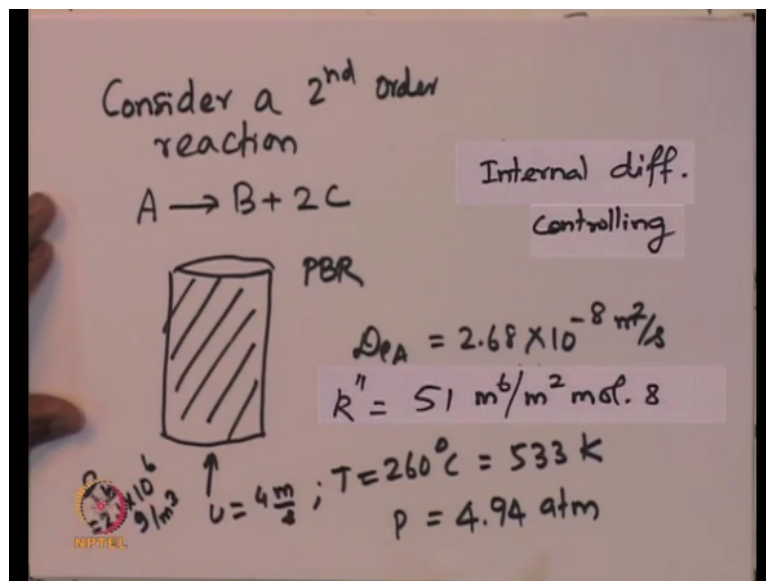 Consider a 2nd order
reaction
A → B + 2C
Internal diff.
Controlling
PBR
DeA = 2.68 × 10^-8 m²/s
k" = 51 m⁶/m² mol. s
U = 4 m/s ; T = 260°C = 533 K
P = 4.94 atm
× 10⁶
g/m³
NPTEL